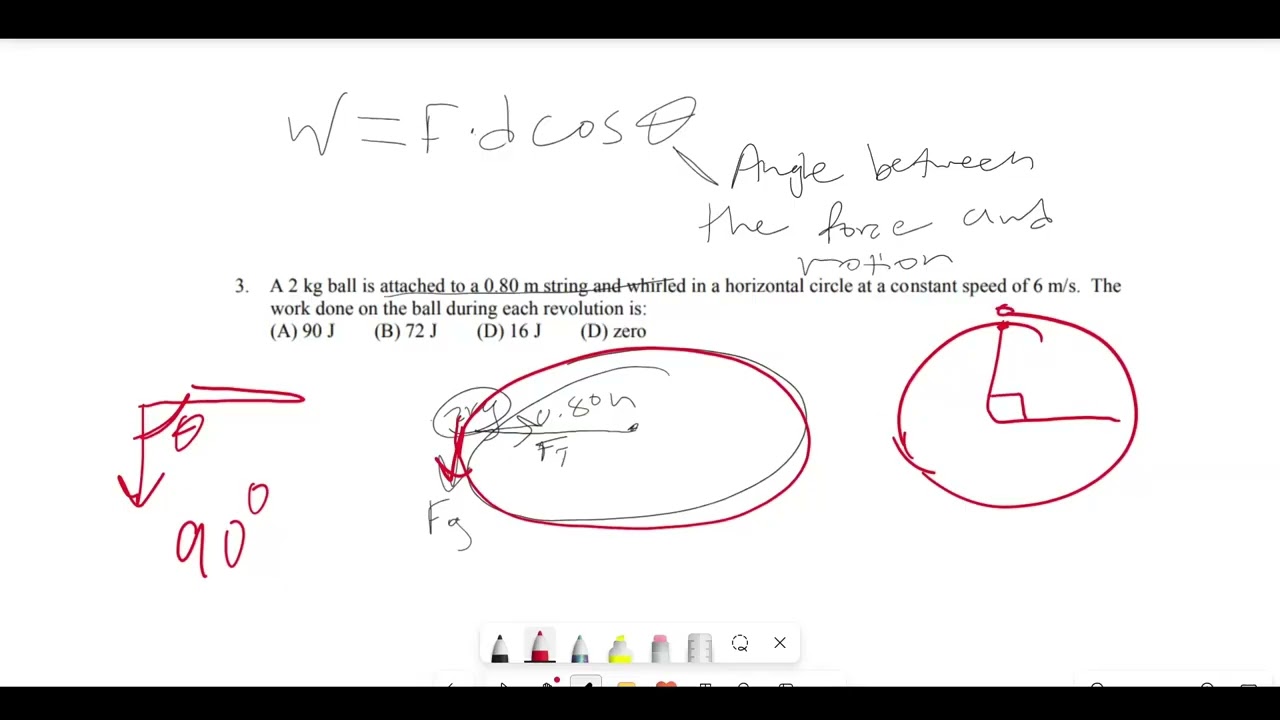 W = F · d cos θ
Angle between
the force and
motion
3. A 2 kg ball is attached to a 0.80 m string and whirled in a horizontal circle at a constant speed of 6 m/s. The
work done on the ball during each revolution is:
(A) 90 J (B) 72 J (D) 16 J (D) zero
θ
90°
2kg
0.80m
FT
Fg